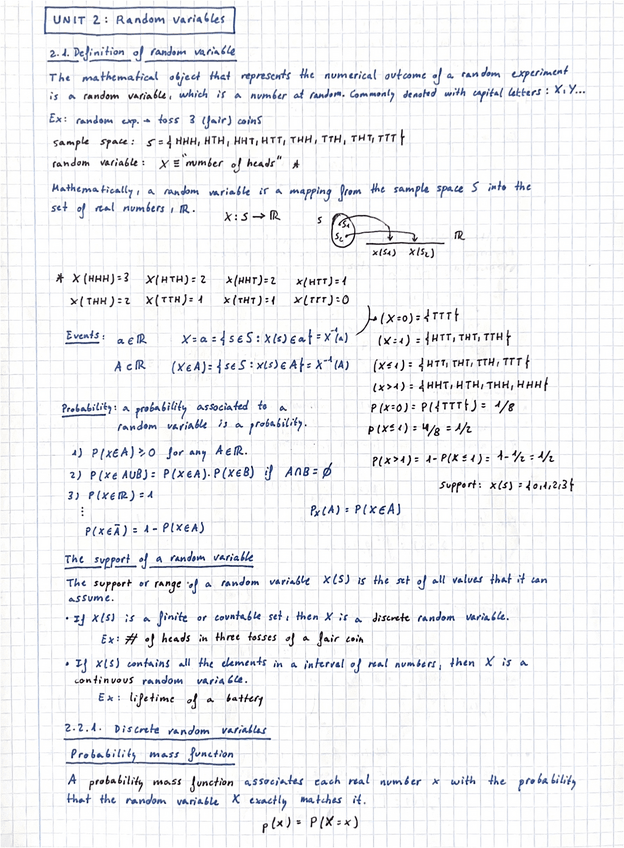 UNIT 2: Random variables
2.1. Definition of random variable
The mathematical object that represents the numerical outcome of a random experiment
is a random variable, which is a number at random. Commonly denoted with capital letters: X, Y...
Ex: random exp. → toss 3 (fair) coins
sample space: S = {HHH, HTH, HHT, HTT, THH, TTH, THT, TTT}
random variable: X ≡ "number of heads" *
Mathematically, a random variable is a mapping from the sample space S into the
set of real numbers, ℝ.
X: S → ℝ
S
S₁
S₂
ℝ
X(S₁) X(S₂)
* X(HHH)=3 X(HTH)=2 X(HHT)=2 X(HTT)=1
X(THH)=2 X(TTH)=1 X(THT)=1 X(TTT)=0
Events: a∈ℝ X=a = {s∈S: X(s)∈a} = X⁻¹(a)
A⊂ℝ (X∈A) = {s∈S: X(s)∈A} = X⁻¹(A)
(X=0) = {TTT}
(X=1) = {HTT, THT, TTH}
(X≤1) = {HTT, THT, TTH, TTT}
(X>1) = {HHT, HTH, THH, HHH}
P(X=0) = P({TTT}) = 1/8
P(X≤1) = 4/8 = 1/2
P(X>1) = 1-P(X≤1) = 1-1/2 = 1/2
support: X(S) = {0,1,2,3}
Probability: a probability associated to a
random variable is a probability.
1) P(X∈A) ≥ 0 for any A∈ℝ.
2) P(X∈A∪B) = P(X∈A).P(X∈B) if A∩B=∅
3) P(X∈ℝ) = 1
⋮
P(X∈Ā) = 1-P(X∈A)
Pₓ(A) = P(X∈A)
The support of a random variable
The support or range of a random variable X(S) is the set of all values that it can
assume.
• If X(S) is a finite or countable set, then X is a discrete random variable.
Ex: # of heads in three tosses of a fair coin
• If X(S) contains all the elements in a interval of real numbers, then X is a
continuous random variable.
Ex: lifetime of a battery
2.2.1. Discrete random variables
Probability mass function
A probability mass function associates each real number x with the probability
that the random variable X exactly matches it.
p(x) = P(X=x)